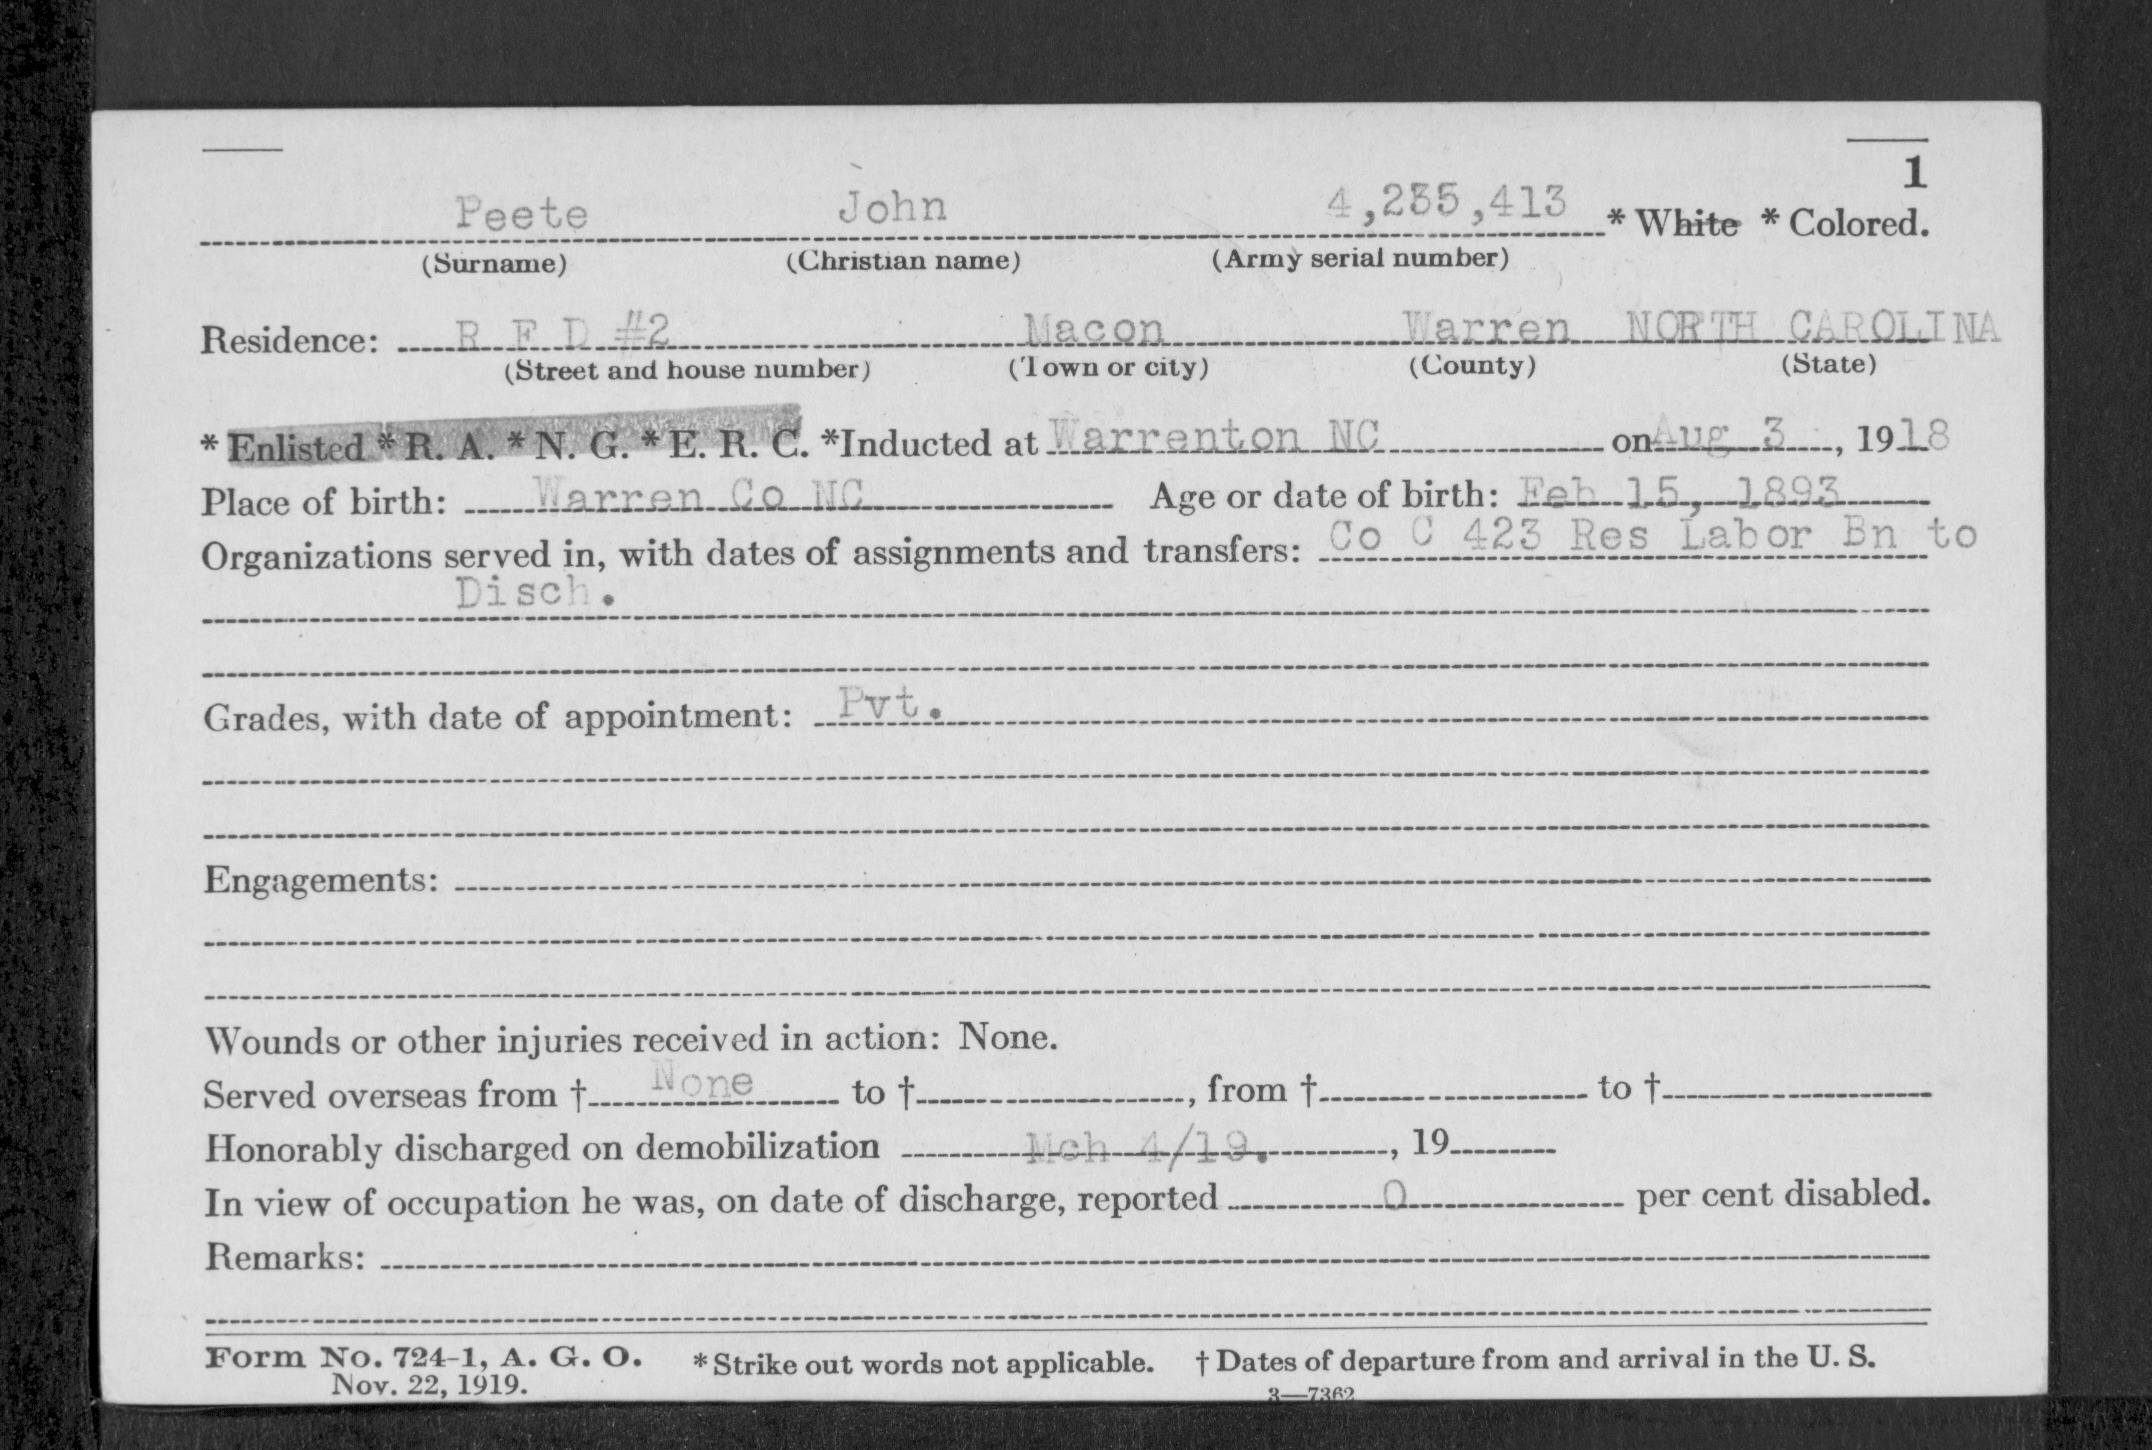 1
Peete John 4,235,413 * White * Colored.
(Surname) (Christian name) (Army serial number)
Residence: R F D #2 Macon Warren NORTH CAROLINA
(Street and house number) (Town or city) (County) (State)
* Enlisted * R. A. * N. G. * E. R. C. *Inducted at Warrenton NC on Aug 3, 1918
Place of birth: Warren Co NC Age or date of birth: Feb 15, 1893
Organizations served in, with dates of assignments and transfers: Co C 423 Res Labor Bn to
Disch.
Grades, with date of appointment: Pvt.
Engagements:
Wounds or other injuries received in action: None.
Served overseas from † None to †, from † to †
Honorably discharged on demobilization Mch 4/19., 19
In view of occupation he was, on date of discharge, reported 0 per cent disabled.
Remarks:
Form No. 724-1, A. G. O. * Strike out words not applicable. † Dates of departure from and arrival in the U. S.
Nov. 22, 1919. 3—7362